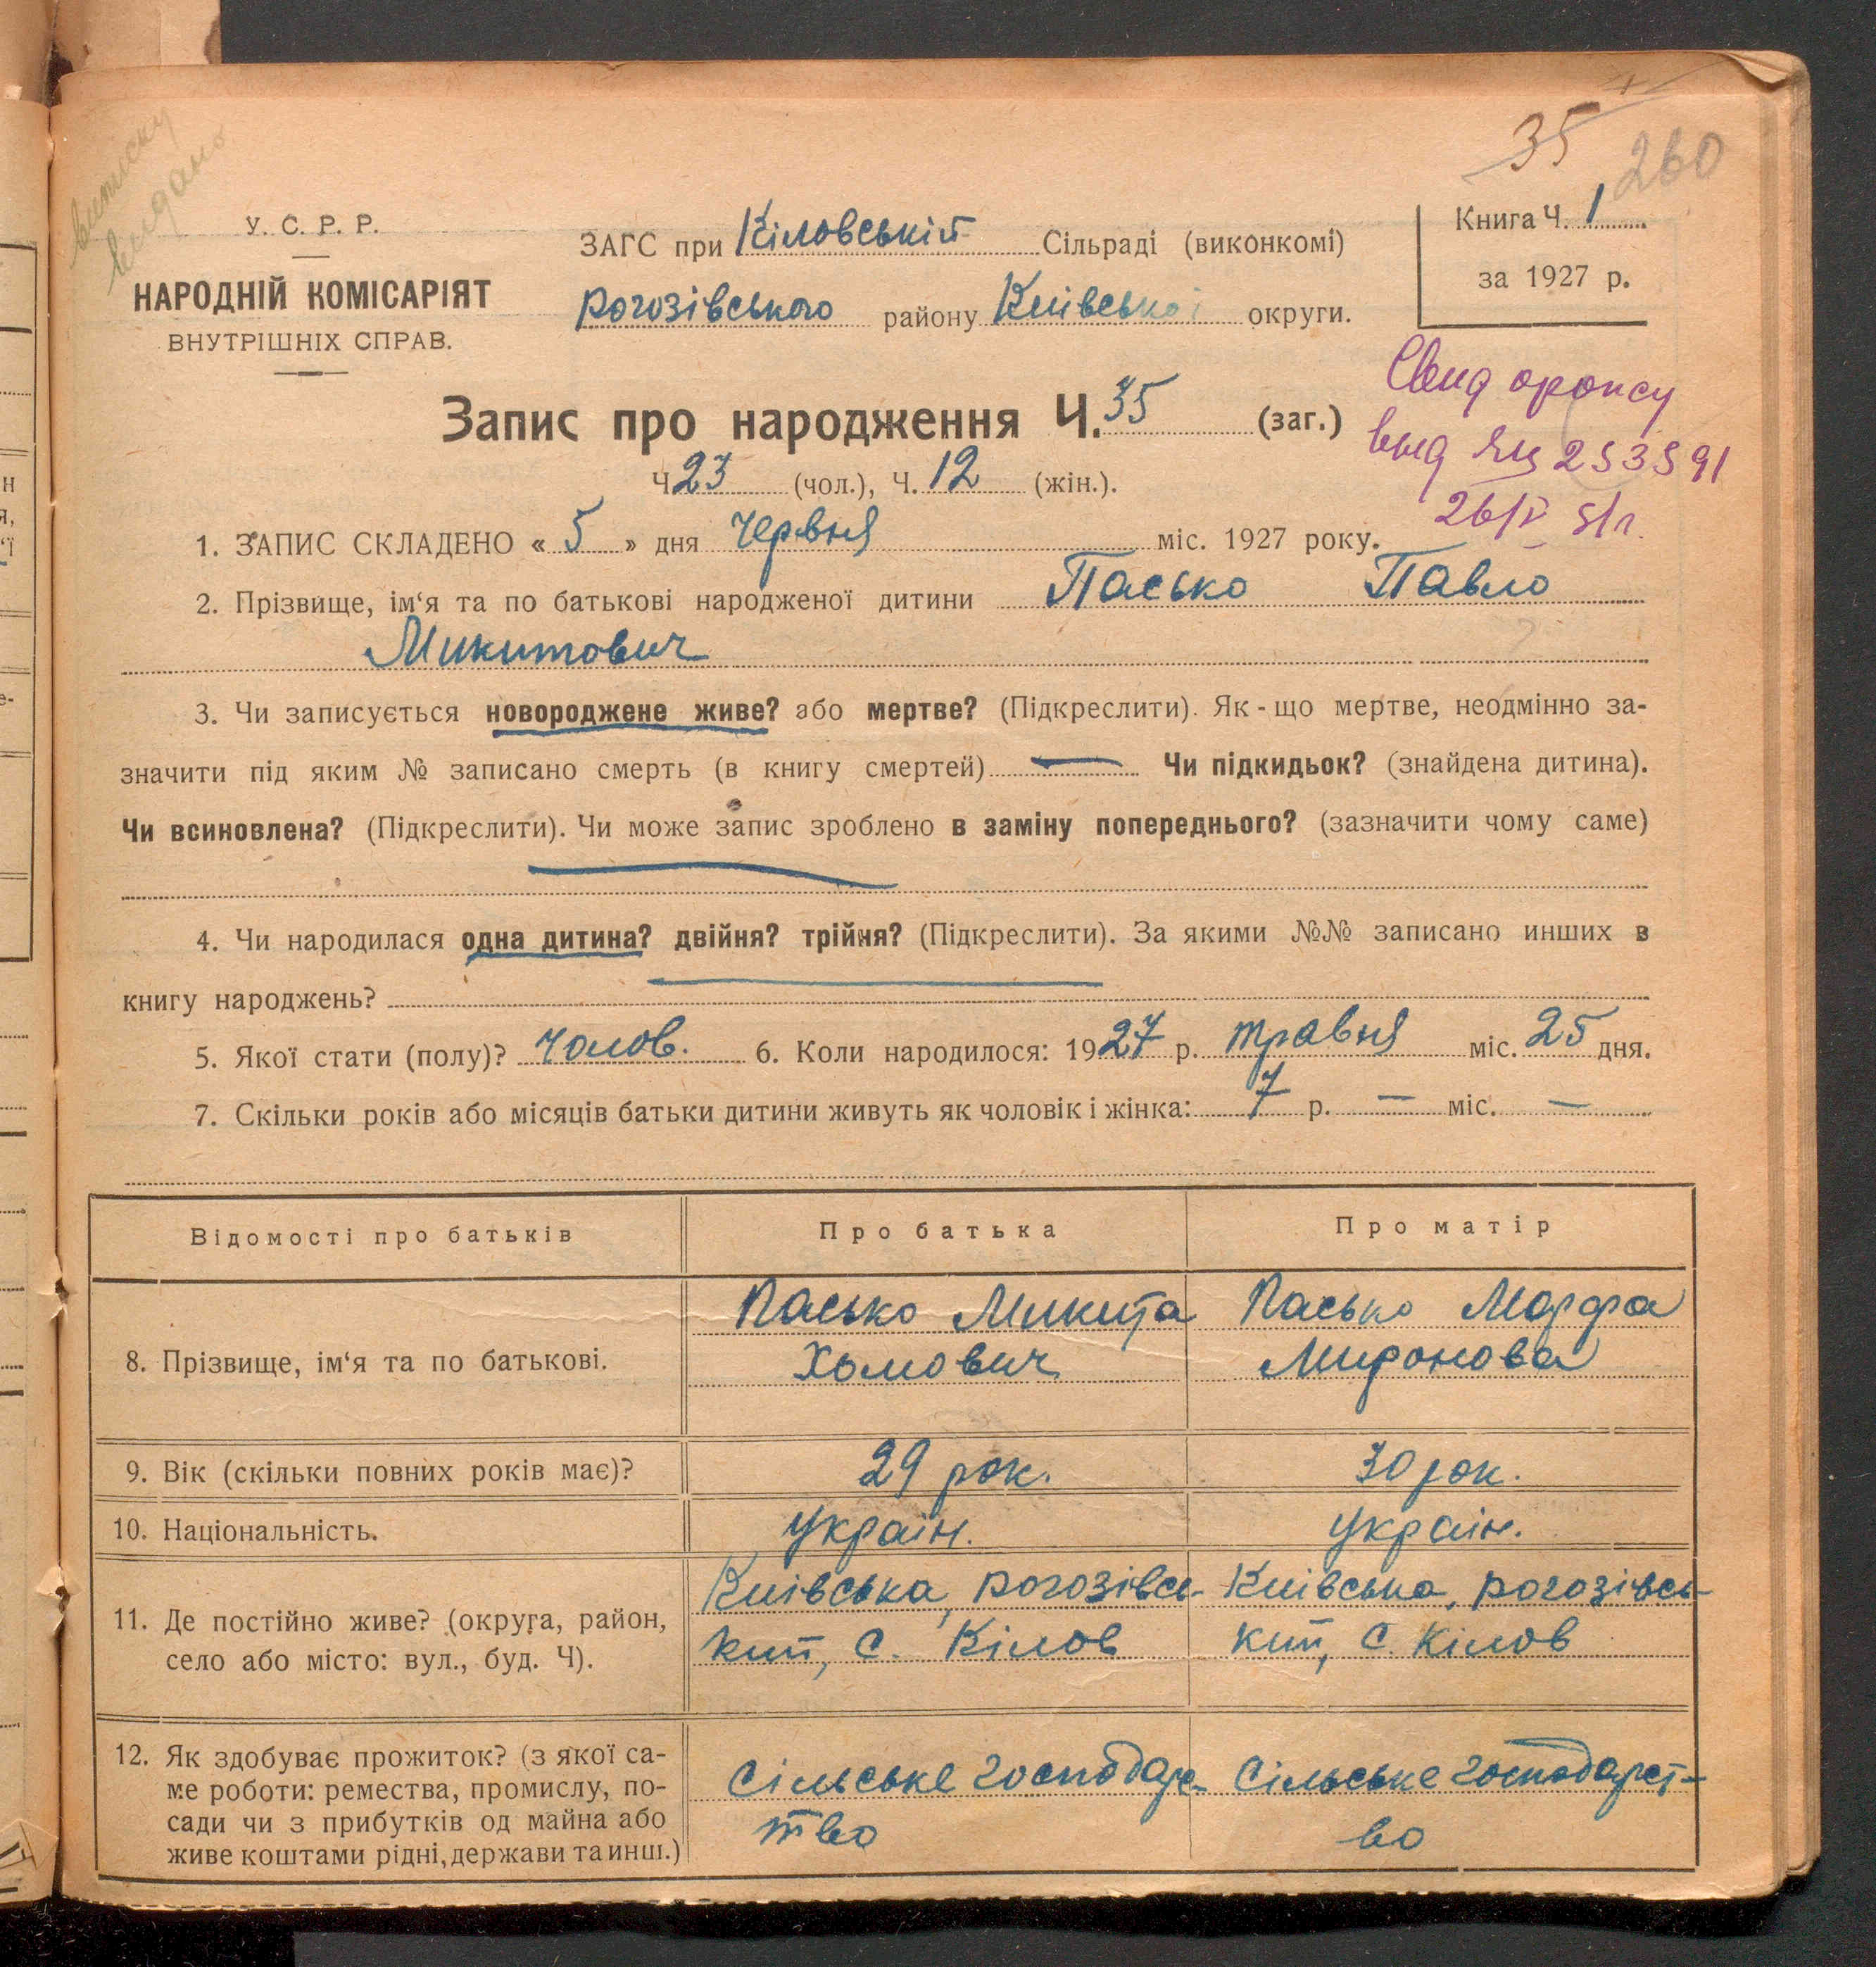 35
260
виписку
видано
У. С. Р. Р.
НАРОДНІЙ КОМІСАРІЯТ
ВНУТРІШНІХ СПРАВ.
ЗАГС при Кіловській Сільраді (виконкомі)
Рогозівського району Київської округи.
Книга Ч. 1
за 1927 р.
Запис про народження Ч. 35 (заг.)
Ч 23 (чол.), Ч. 12 (жін.).
вид ЯЦ 253591
26/V 51 г.
1. ЗАПИС СКЛАДЕНО « 5 » дня Червня міс. 1927 року.
2. Прізвище, ім‘я та по батькові народженої дитини Пасько Павло
Микитович
3. Чи записується новороджене живе? або мертве? (Підкреслити). Як-що мертве, неодмінно за-
значити під яким № записано смерть (в книгу смертей) — Чи підкидьок? (знайдена дитина).
Чи всиновлена? (Підкреслити). Чи може запис зроблено в заміну попереднього? (зазначити чому саме)
4. Чи народилася одна дитина? двійня? трійня? (Підкреслити). За якими №№ записано инших в
книгу народжень?
5. Якої стати (полу)? Чолов. 6. Коли народилося: 1927 р. травня міс. 25 дня.
7. Скільки років або місяців батьки дитини живуть як чоловік і жінка: 7 р. — міс. —
Відомості про батьків Про батька Про матір
8. Прізвище, ім‘я та по батькові.
Пасько Микита
Хомович
Пасько Марфа
Миронова
9. Вік (скільки повних років має)? 29 рок. 30 рок.
10. Національність. Україн. Україн.
11. Де постійно живе? (округа, район,
село або місто: вул., буд. Ч).
Київська, Рогозівсь-
кий, с. Кілов
Київська, Рогозівсь-
кий, с. Кілов
12. Як здобуває прожиток? (з якої са-
ме роботи: ремества, промислу, по-
сади чи з прибутків од майна або
живе коштами рідні, держави та инш.)
Сільське господарс-
тво
Сільське господарст-
во